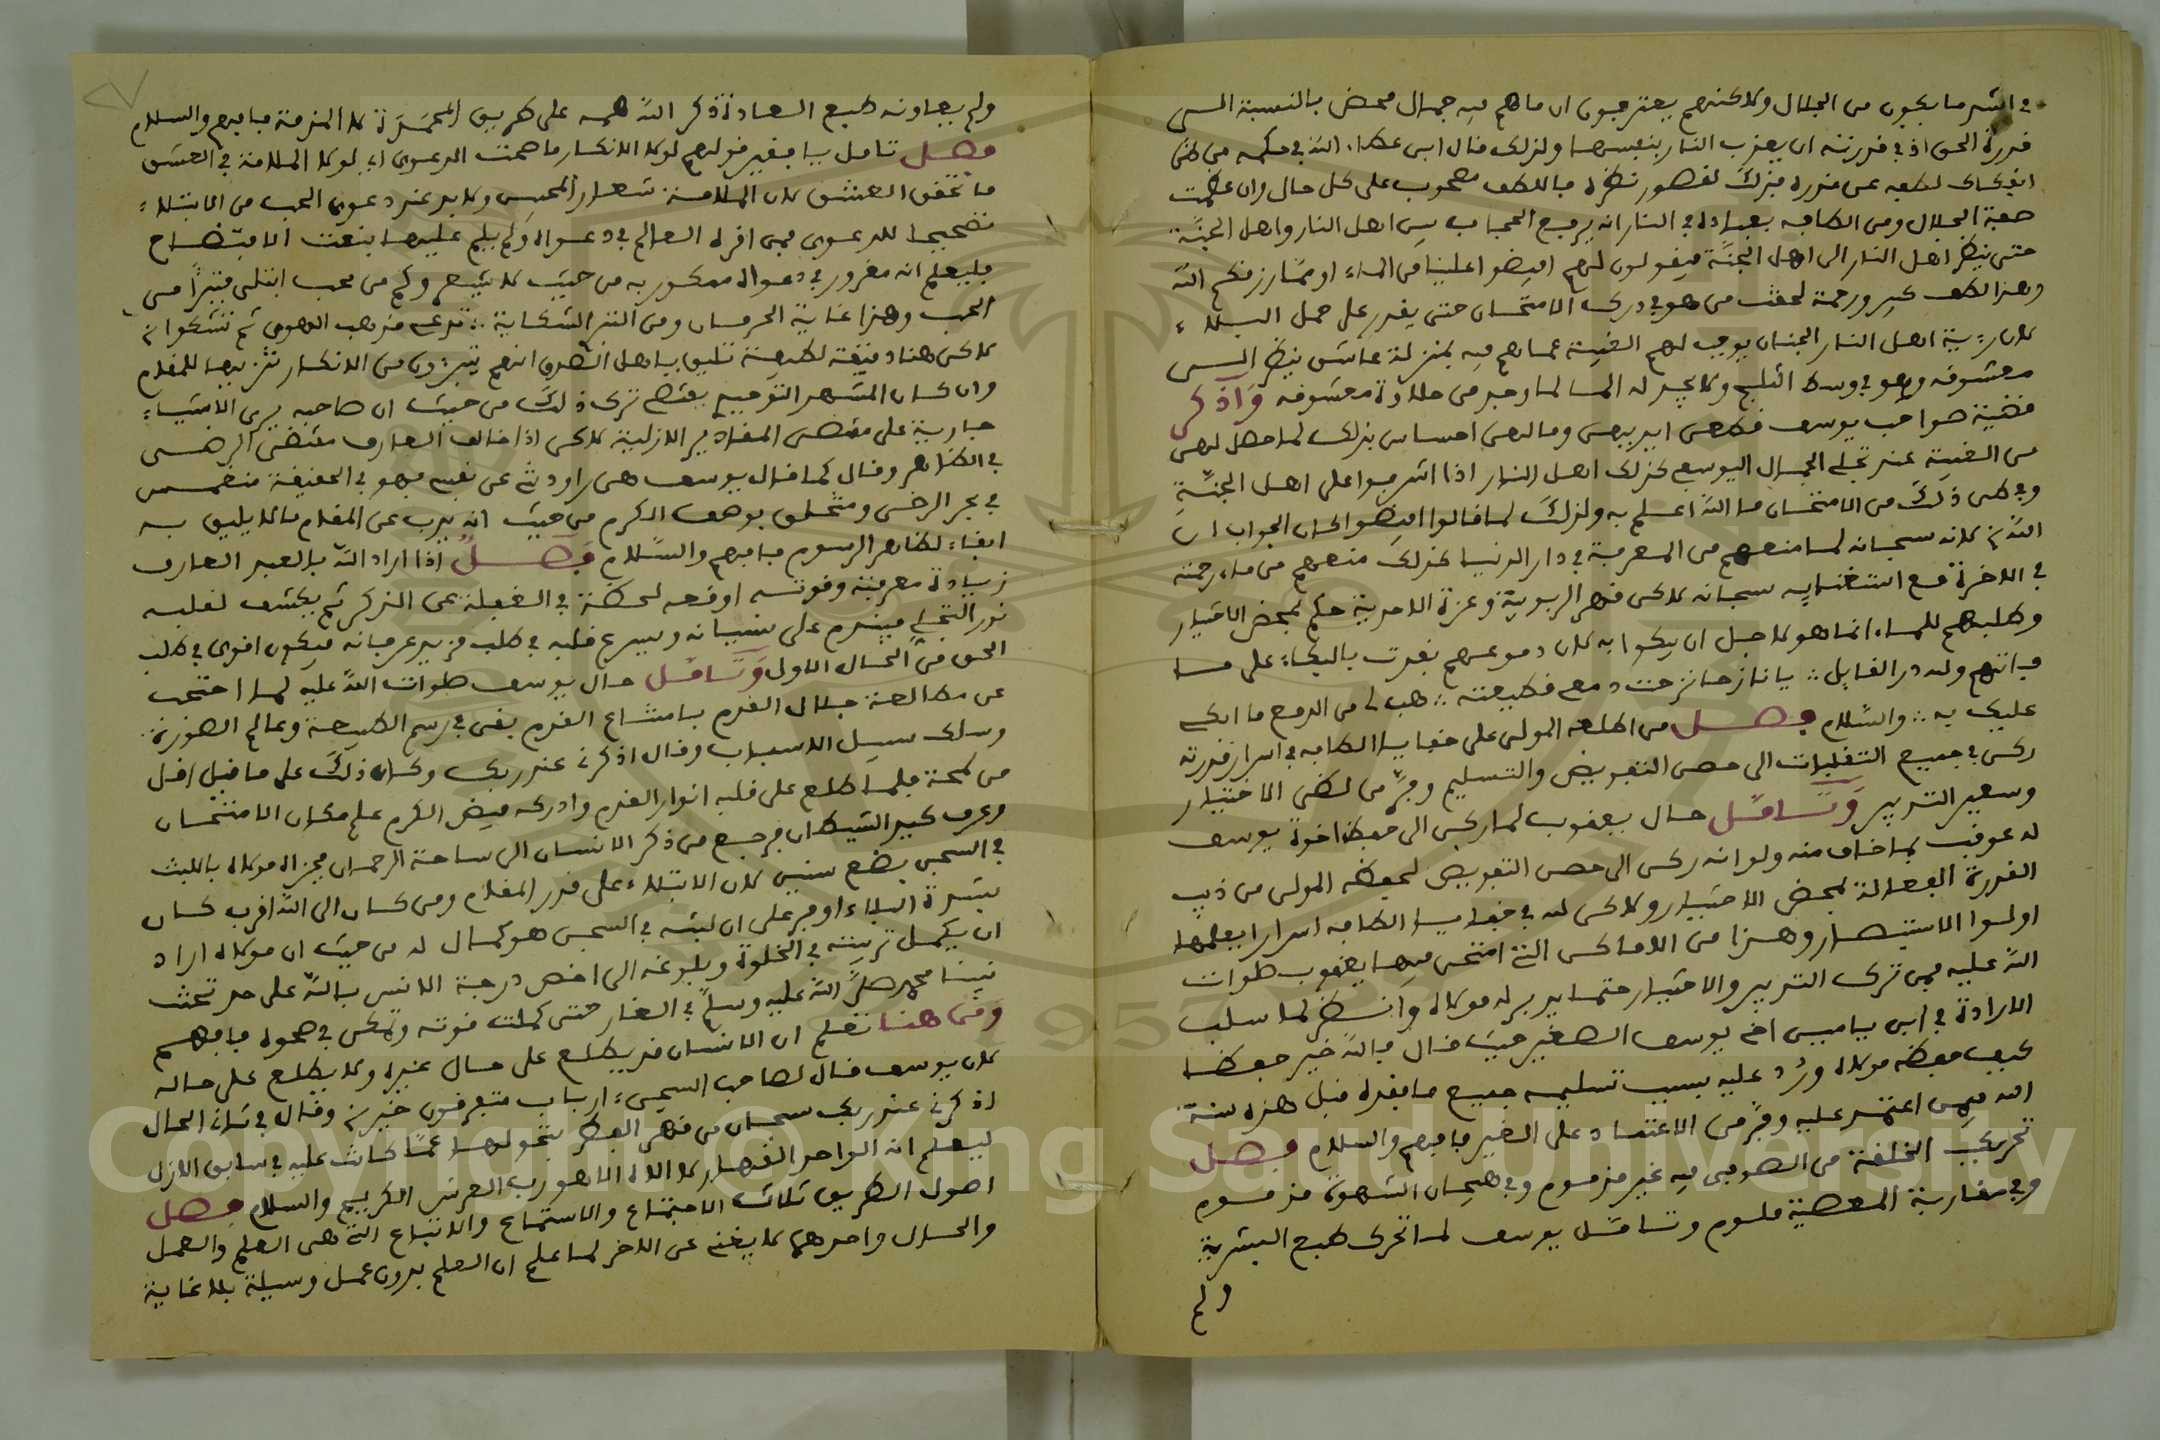 في اشر ما يكون من الجلال ولاكنهم يعترفون ان ما هم فيه جمال محض بالنسبة الى
قدرة الحق اذ في قدرته ان يعذب النار بنفسها ولذلك قال ابن عطاء الله في حكمه من ظن
انفكاك لطفه عن قدره فذلك لقصور نظره فاللطف مصحوب على كل حال وان عظمت
صفة الجلال ومن الطافه بعباده في النار انه يرفع الحجاب بين اهل النار واهل الجنة
حتى ينظر اهل النار الى اهل الجنة فيقولون لهم افيضوا علينا من الماء او مما رزقكم الله
وهذا لطف كبير ورحمة لحقت من هو في درك الامتحان حتى يقدر على حمل البلاء
لان رؤية اهل النار الجنان يوجب لهم الغيبة عما هم فيه بمنزلة عاشق ينظر الى
معشوقه وهو في وسط الثلج ولا يجد له الما لما وجد من حلاوة معشوقه واذكر
قضية صواحب يوسف قطعن ايديهن وما لهن احساس بذلك لما حصل لهن
من الغيبة عند تجلي الجمال اليوسفي كذلك اهل النار اذا اشرفوا على اهل الجنة
وفي طي ذلك من الامتحان ما الله اعلم به ولذلك لما قالوا افيضوا كان الجواب ان
الله لانه سبحانه لما منعهم من المعرفة في دار الدنيا كذلك منعهم من ماء رحمته
في الاخرة مع استغنايه سبحانه لاكن قهر الربوبية وعزة الاحدية حكم بمحض الاختيار
وطلبهم للماء انما هو لاجل ان يبكوا به لان دموعهم نفدت بالبكاء على ما
فاتهم ولله در القايل يا نازحا نزحت دمعي قطيعته هب لي من الدمع ما ابكي
عليك به والسلام فصل من اطلعه المولى على خفايا الطافه في اسرار قدرته
ركن في جميع التقلبات الى حصن التفويض والتسليم وفر من لظى الاختيار
وسعير التدبير وتامل حال يعقوب لما ركن الى حفظ اخوة يوسف
له عوقب بما خاف منه ولو انه ركن الى حصن التفويض لحفظه المولى من ذيب
القدرة الفعالة بمحض الاختيار ولاكن له في خفايا الطافه اسرارا يعلمها
اولوا الاستبصار وهذا من الاماكن التي امتحن فيها يعقوب صلوات
الله عليه فمن ترك التدبير والاختيار حتما يدبر له مولاه وانظر لما سلب
الارادة في ابن يامين اخ يوسف الصغير حيث قال فالله خير حفظا
كيف حفظه مولاه ورد عليه بسبب تسليمه جميع ما فقده قبل هذه سنة
الله فيمن اعتمد عليه وفر من الاعتماد على الغير فافهم والسلام فصل
تحريك الخلقة من الصوفي فيه غير مذموم وفي هيجان الشهوة مذموم
وفي مقاربة المعصية ملوم وتامل يوسف لما تحرك طبع البشرية
ولم
ولم يعاونه طبع العادة ذكر الله همه على طريق المحمدة لا المذمة فافهم والسلام
فصل تامل يا فقير قولهم لولا الانكار ما صحت الدعوى اي لولا الملامة في العشق
ما تحقق العشق لان الملامة شعار المحبين ولا بد عند دعوى الحب من الابتلاء
تصحيحا للدعوى فمن اقره العالم في دعواه ولم يلم عليها بنعت الافتضاح
فليعلم انه مغرور في دعواه ممكور به من حيث لا يشعر وكم من محب ابتلى فتبرا من
الحب وهذا غاية الحرمان ومن انت الشكاية تدعي مذهب الهوى ثم تشكوا
لاكن هنا دقيقة لطيفة تليق باهل الطرق انهم يتبرؤن من الانكار تنزيها للمقام
وان كان المشهد التوحيدي يقتضي ترك ذلك من حيث ان صاحبه يرى الاشياء
جارية على مقتضى المقادير الازلية لاكن اذا خالف العارف مقتضى الرضى
في الظاهر وقال كما قال يوسف هي راودتني عن نفسي فهو في الحقيقة منغمس
في بحر الرضى ومتخلق بوصف الكرم من حيث انه يذب عن المقام ما لا يليق به
ابقاء لظاهر الرسوم فافهم والسلام فصل اذا اراد الله بالعبد العارف
زيادة معرفته وقوته اوقعه لحظة في الغفلة عن الذكر ثم يكشف لقلبه
نور التجلي فيندم على نسيانه ويسرع قلبه في طلب مزيد عرفانه فيكون اقوى في طلب
الحق من الحال الاول وتامل حال يوسف صلوات الله عليه لما احتجب
عن مطالعة جلال القدم بامتناع القدم بقى في رسم الطبيعة وعالم الصورة
وسلك سبيل الاسباب وقال اذكرني عند ربك وكان ذلك على ما قيل اقل
من لمحة فلما طلع على قلبه انوار القدم وادركه فيض الكرم علم مكان الامتحان
وعرف كيد الشيطان فرجع من ذكر الانسان الى ساحة الرحمان فجزاه مولاه باللبث
في السجن بضع سنين لان الابتلاء على قدر المقام ومن كان الى الله اقرب كان
بشدة البلاء اوفر على ان لبثه في السجن هو كمال له من حيث ان مولاه اراد
ان يكمل تربيته في الخلوة وبلوغه الى اخص درجة الانس بالله على حد تحنث
نبينا محمد صلى الله عليه وسلم في الغار حتى كملت قوته وتمكن في صحوه فافهم
ومن هنا تعلم ان الانسان قد يطلع على حال غيره ولا يطلع على حاله
لان يوسف قال لصاحب السجن ءارباب متفرقون خير وقال في ثاني الحال
اذكرني عند ربك سبحان من قهر الفطر بتحولها عما كانت عليه في سابق الازل
ليعلم انه الواحد القهار لا اله الا هو رب العرش الكريم والسلام فصل
اصول الطريق ثلاث الاجتماع والاستماع والاتباع التي هي العلم والعمل
والحال واحدهما لا يغني عن الاخر لما علم ان العلم بدون عمل وسيلة بلا غاية
Copyright © King Saud University